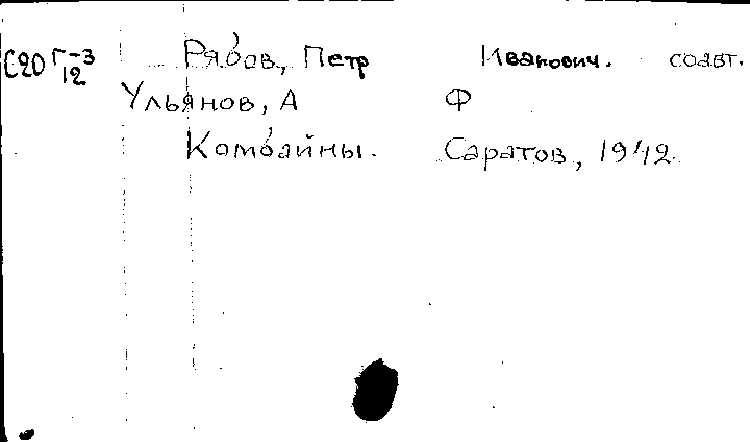 С20 Г-3 Рябов, Петр Иванович. соавт.
12
Ульянов, А Ф
Комбайны. Саратов, 1942